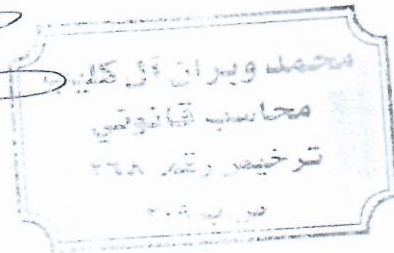 محمد وبران آل كليب
محاسب قانوني
ترخيص رقم ٢٦٨
س ب ٢٠٩